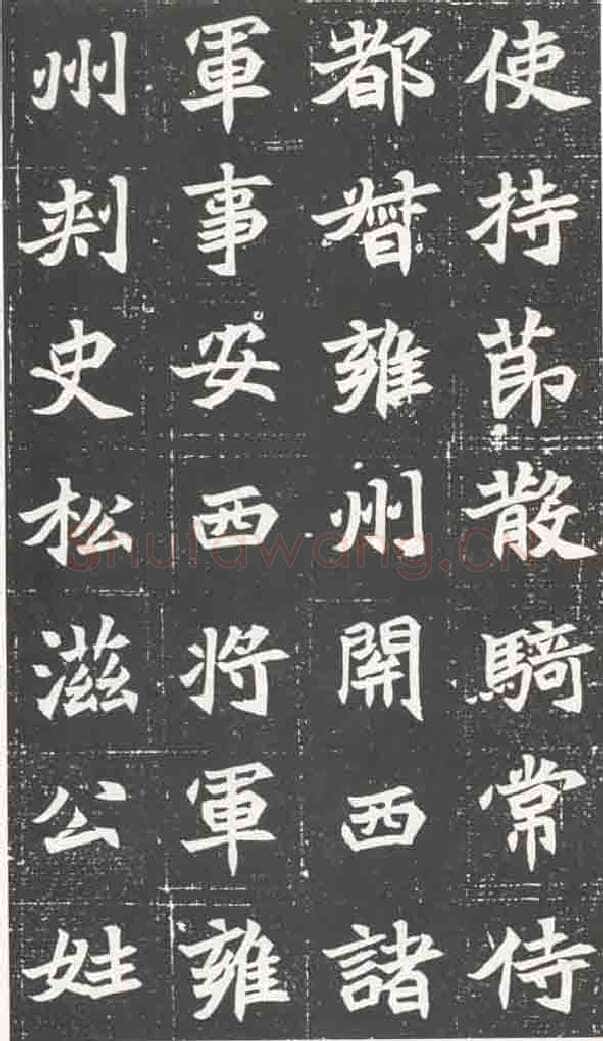 使持莭散騎常侍
都督雍州開西諸
軍事安西将軍雍
州刾史松滋公姓
shufawang.cn